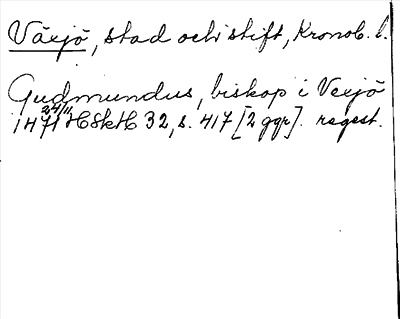 Växjö, stad och stift, Kronob. l.
Gudmundus, biskop i Vexiö
1471 24/11 HSkH 32, s. 417 [2 ggr]. regest.